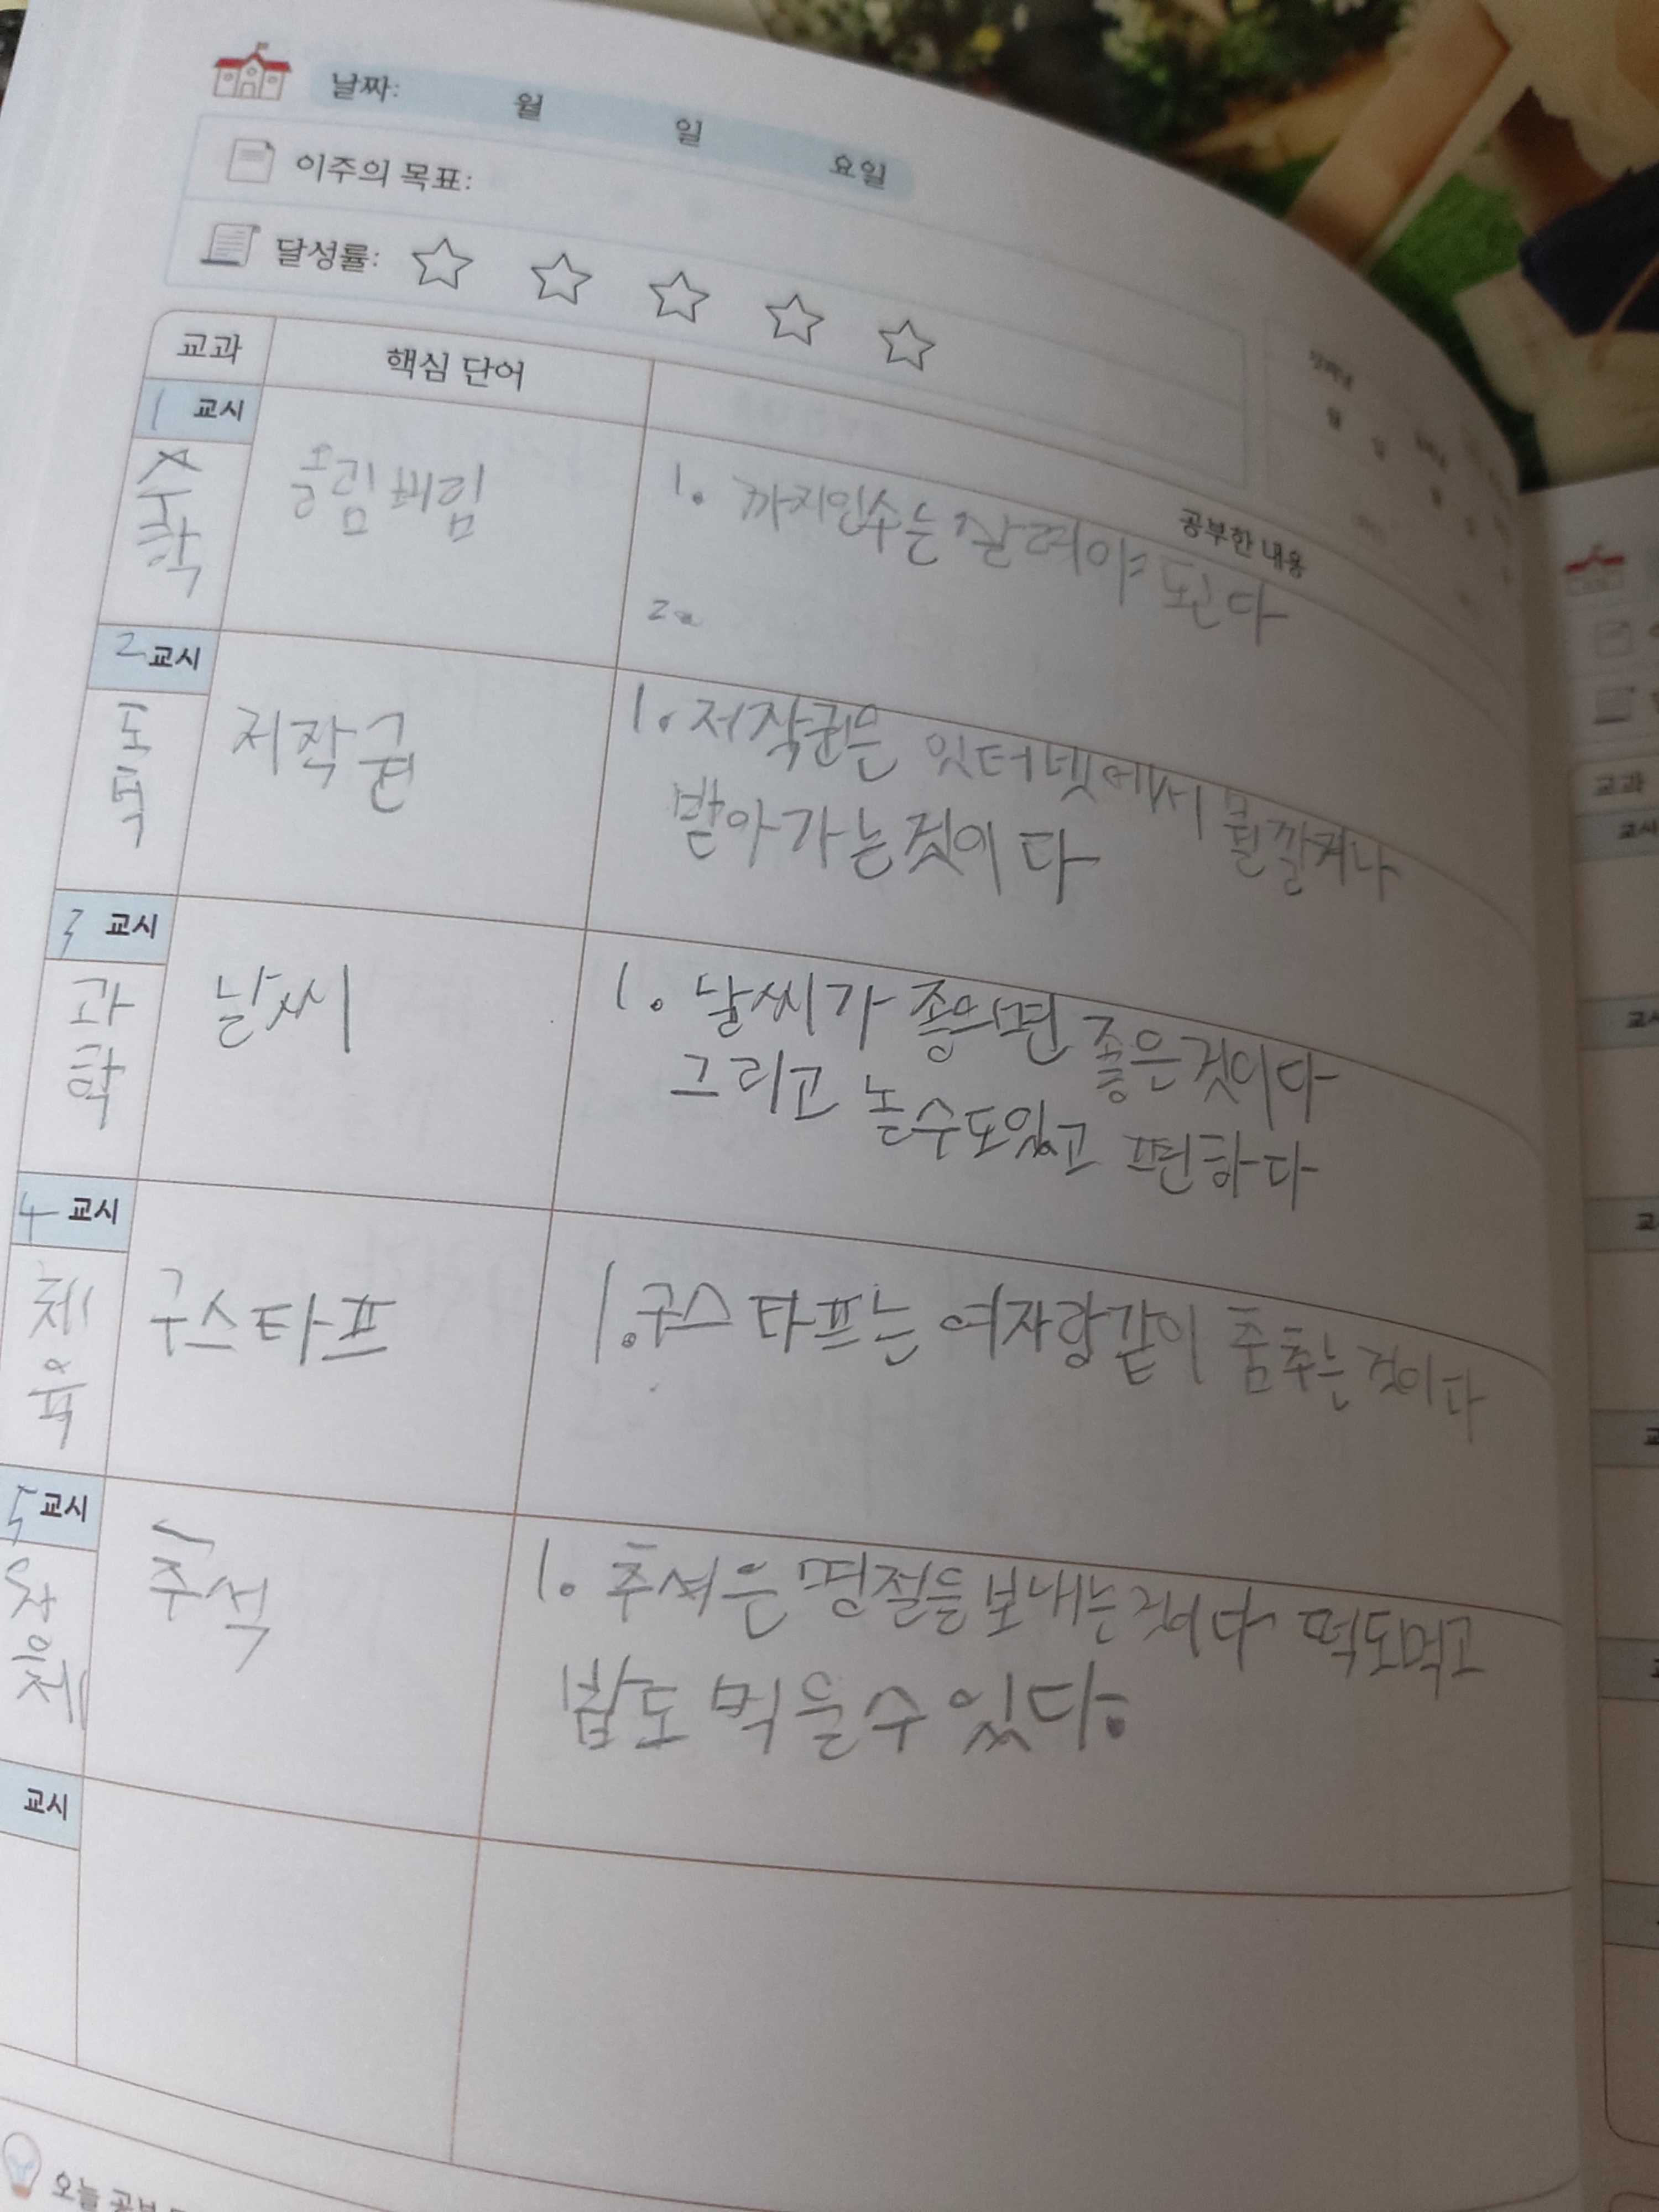 날짜: 월 일 요일
이주의 목표:
달성률:
교과 핵심 단어 공부한 내용
1 교시
수학
올림버림
1. 까지인수는 올려야 된다
2.
2 교시
도덕
저작권
1. 저작권은 잇터넷에서
받아가는것이다
3 교시
과학
날씨
1. 날씨가 좋으면 좋은것이다
그리고 놀수도있고 편하다
4 교시
체육
구스타프
1. 구스타프는 여자랑같이 춤추는것이다
5 교시
창체
추석
1. 추서은 명절을보내는것이다 떡도먹고
밥도 먹을수있다.
교시
오늘 공부
교과
교시